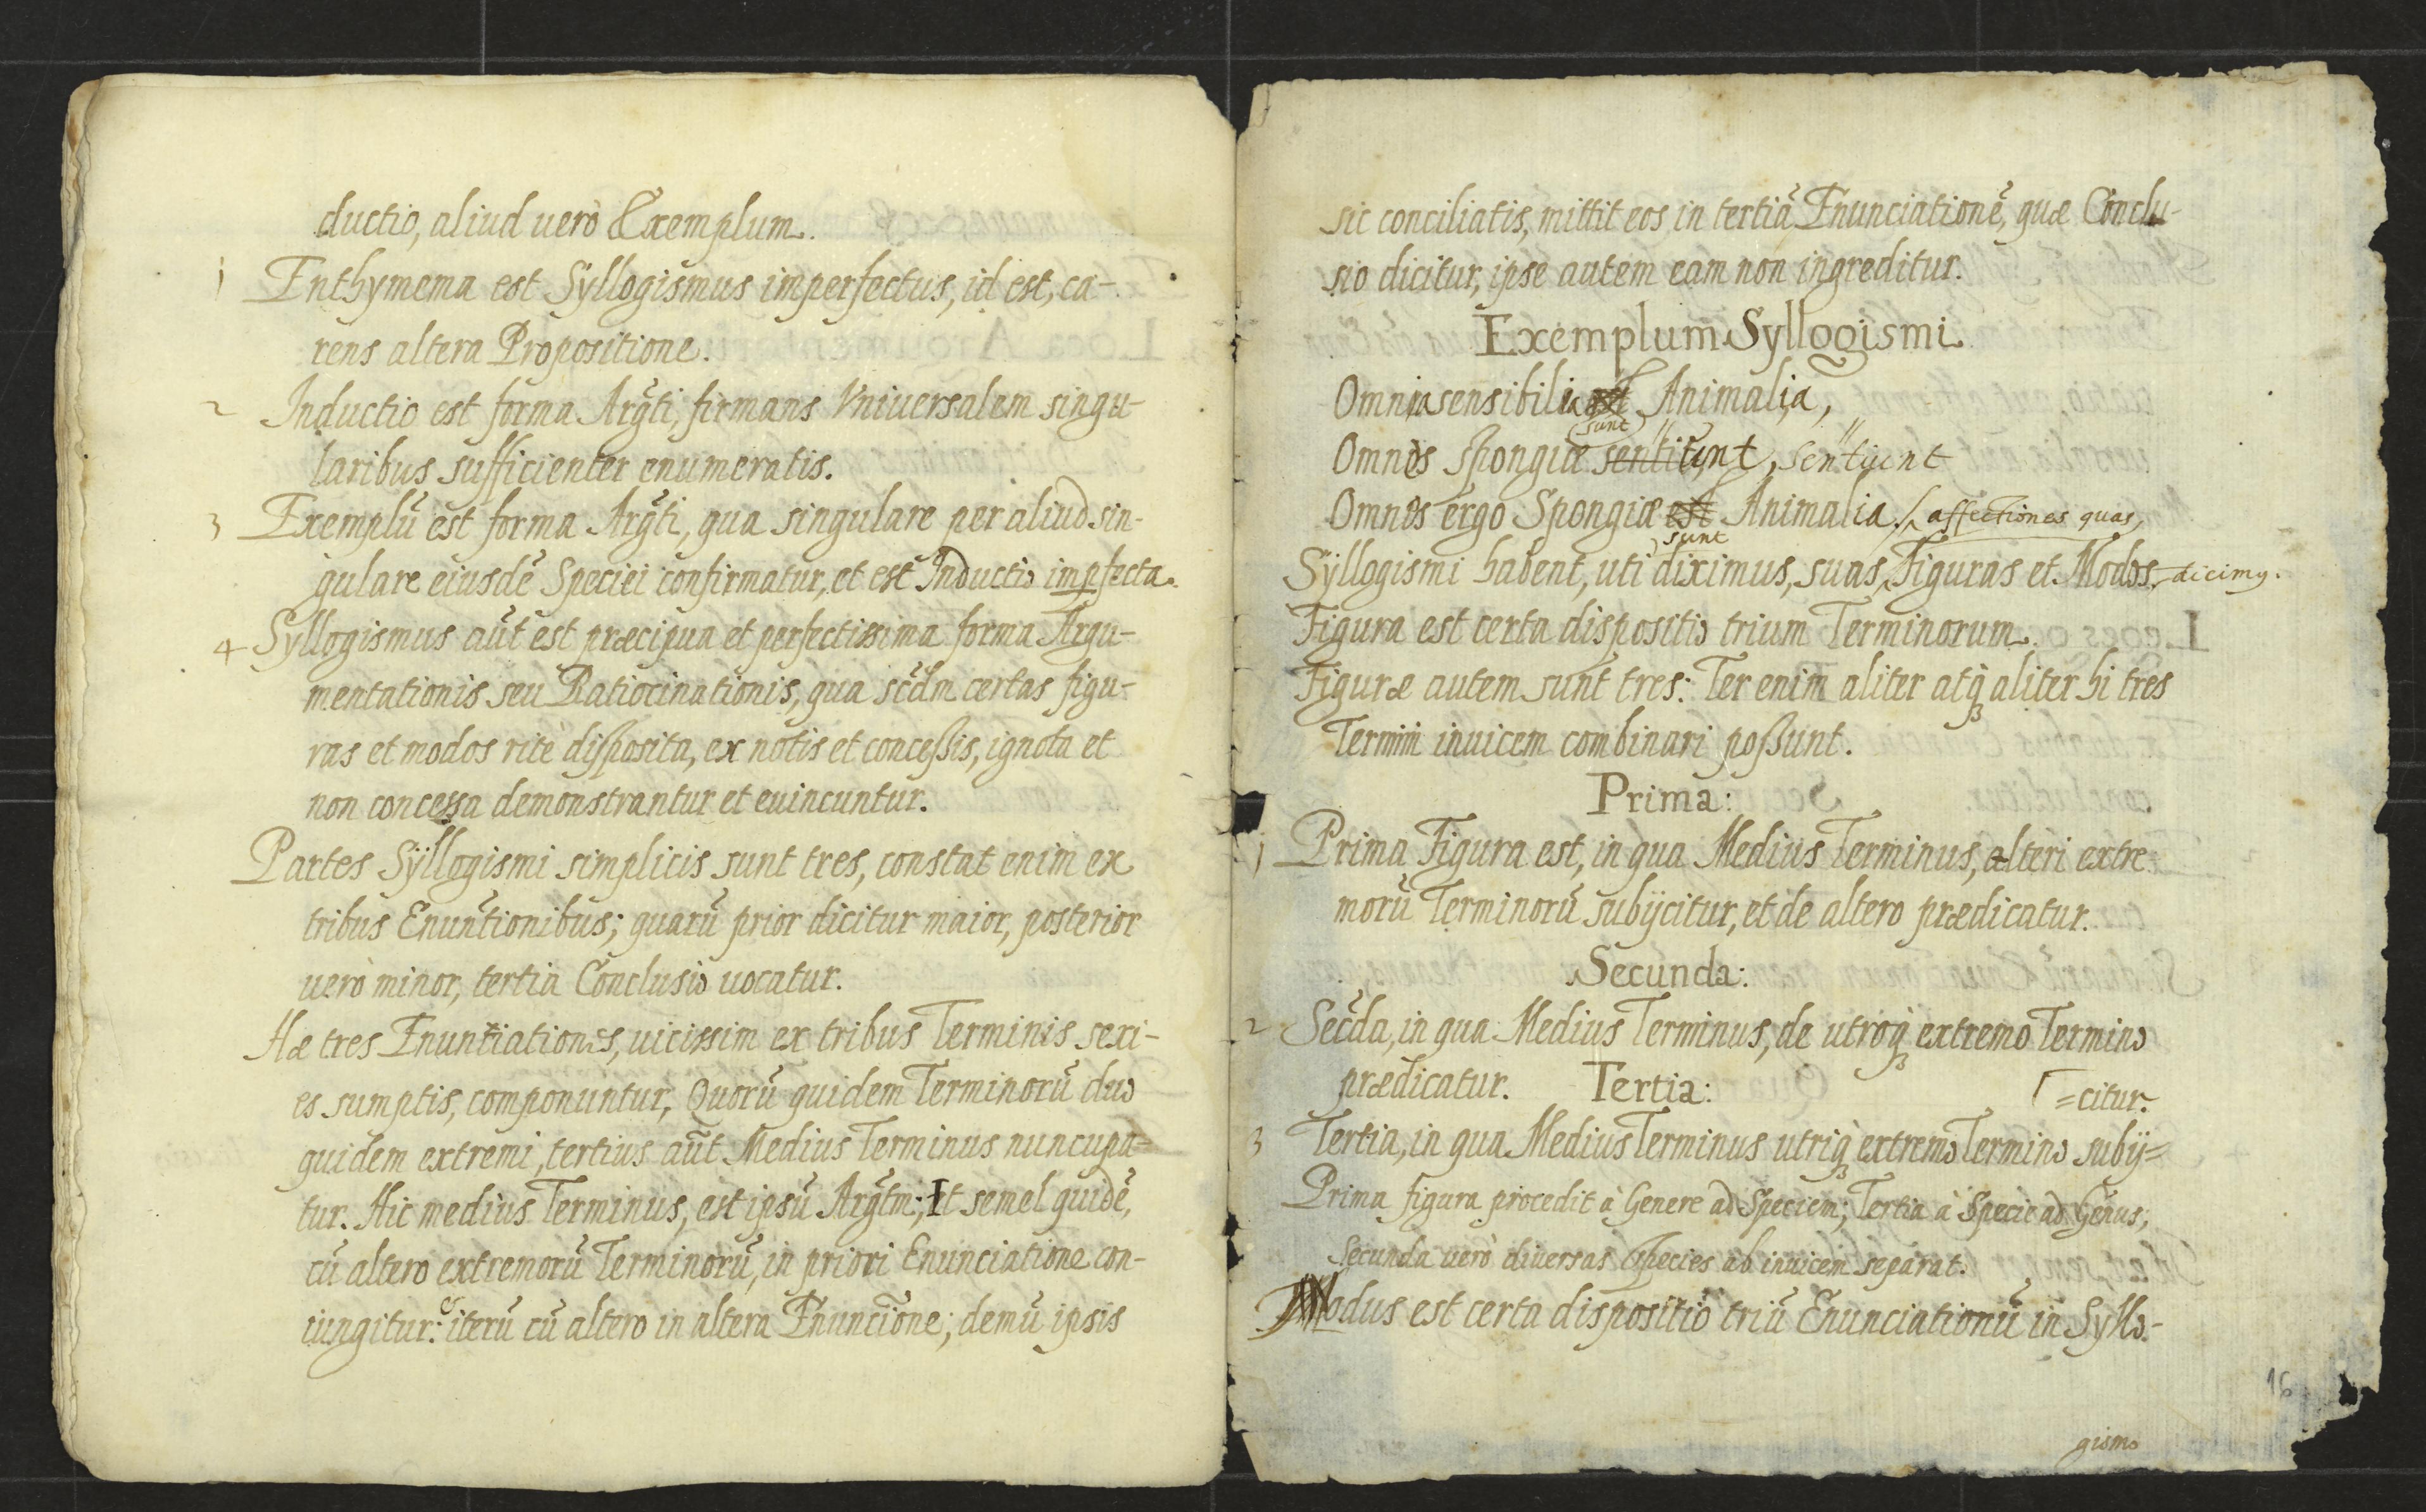 ductio, aliud uerò Exemplum.
1 Enthymema est Syllogismus imperfectus, id est, ca-
rens altera Propositione.
2 Inductio est forma Argt̃i, firmans Vniuersalem singu-
laribus sufficienter enumeratis.
3 Exemplũ est forma Argt̃i, qua singulare per aliud sin-
gulare eiusdẽ Speciei confirmatur, et est Inductio imꝑfecta.
4 Syllogismus aũt est præcipua et perfectissima forma Argu-
mentationis seu Ratiocinationis, qua scd̃m certas figu-
ras et modos ritè disposita, ex notis et conceßis, ignota et
non concessa demonstrantur et euincuntur.
Partes Sÿllogismi simplicis sunt tres, constat enim ex
tribus Enunt̃ionibus; quarũ prior dicitur maior, posterior
uerò minor, tertia Conclusio uocatur.
Hæ tres Enuntiationes, uicissim ex tribus Terminis sexi-
es sumptis, componuntur, Quorũ quidem Terminorũ duo
quidem extremi, tertius aũt Medius Terminus nuncupa=
tur. Hic medius Terminus, est ipsũ Argt̃m; Et semel quidẽ,
cũ altero extremorũ Terminorũ, in priori Enunciatione con-
iungitur: & iterũ cũ altero in altera Enuncĩone; demũ ipsis
sic conciliatis, mittit eos in tertiã Enunciationẽ, quæ Conclu-
sio dicitur, ipse autem eam non ingreditur.
Exemplum Syllogismi
Omnia sensibilia est Animalia,
sunt
Omnes spongiæ sentiunt, sentiunt
Omnes ergo Spongiæ est Animalia. affectiones quas,
sunt
Sÿllogismi habent, uti diximus, suas Figuras et Modos. dicimꝰ.
Figura est certa dispositio trium Terminorum.
Figuræ autem sunt tres: Ter enim aliter atqꝫ aliter hi tres
Termini inuicem combinari poßunt.
Prima:
1 Prima Figura est, in qua Medius Terminus, alteri extre-
morũ Terminorũ subijcitur, et de altero prædicatur.
Secunda:
2 Secd̃a, in qua Medius Terminus, de utroqꝫ extremo Termino
prædicatur. Tertia:
3 Tertia, in qua Medius Terminus utriqꝫ extremo Termino subij=
=citur.
Prima figura procedit à Genere ad Speciem; Tertia à Specie ad Genus;
Secunda uerò diuersas Species ab inuicem separat.
Modus est certa dispositio triũ Enunciationũ in Syllo-
16
gismo